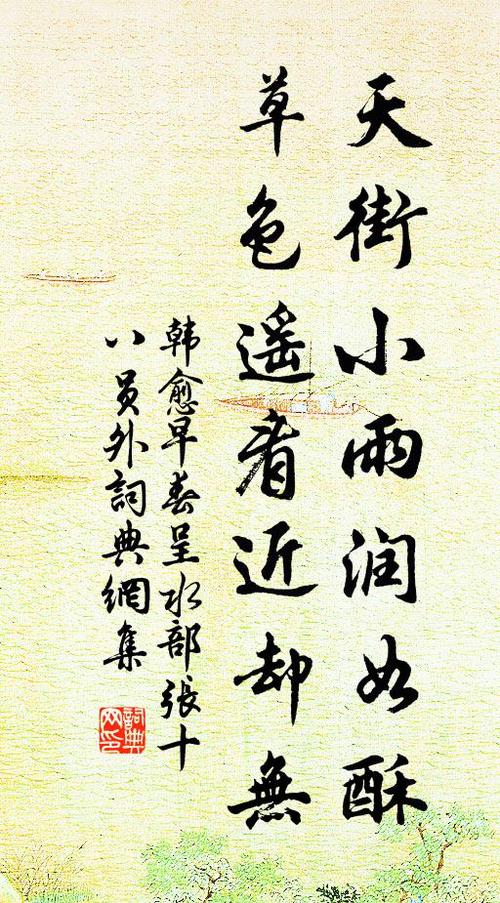 天街小雨润如酥
草色遥看近却無
韩愈早春呈水部張十
八員外詞典網集
詞典
网印